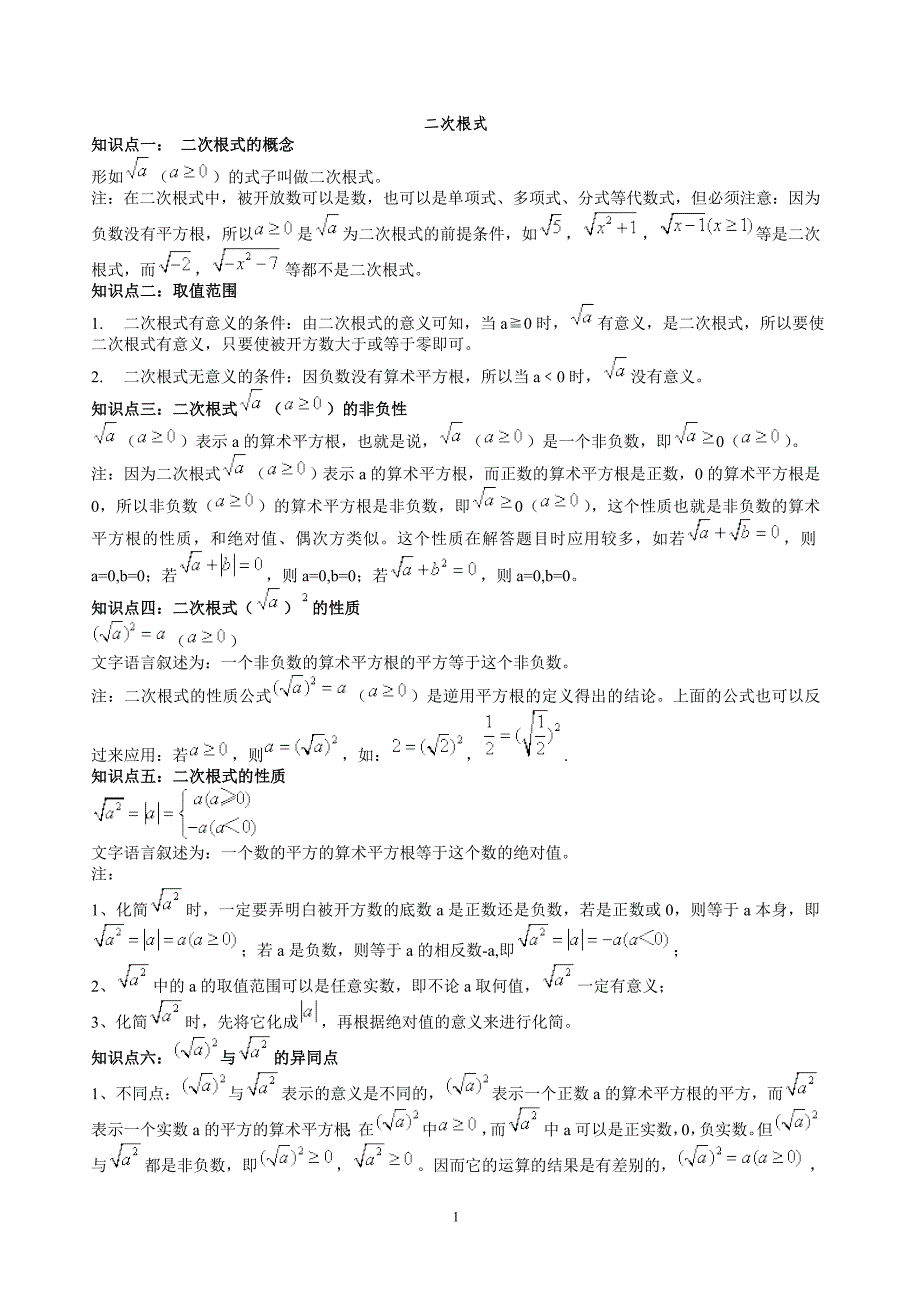 二次根式
知识点一： 二次根式的概念
形如√a（a≥0）的式子叫做二次根式。
注：在二次根式中，被开放数可以是数，也可以是单项式、多项式、分式等代数式，但必须注意：因为
负数没有平方根，所以a≥0是√a为二次根式的前提条件，如√5，√(x²+1)，√(x-1)(x≥1)等是二次
根式，而√(-2)，√(-x²-7)等都不是二次根式。
知识点二：取值范围
1. 二次根式有意义的条件：由二次根式的意义可知，当a≧0时，√a有意义，是二次根式，所以要使
二次根式有意义，只要使被开方数大于或等于零即可。
2. 二次根式无意义的条件：因负数没有算术平方根，所以当a﹤0时，√a没有意义。
知识点三：二次根式√a（a≥0）的非负性
√a（a≥0）表示a的算术平方根，也就是说，√a（a≥0）是一个非负数，即√a≥0（a≥0）。
注：因为二次根式√a（a≥0）表示a的算术平方根，而正数的算术平方根是正数，0的算术平方根是
0，所以非负数（a≥0）的算术平方根是非负数，即√a≥0（a≥0），这个性质也就是非负数的算术
平方根的性质，和绝对值、偶次方类似。这个性质在解答题目时应用较多，如若√a+√b=0，则
a=0,b=0；若√a+|b|=0，则a=0,b=0；若√a+b²=0，则a=0,b=0。
知识点四：二次根式（√a）²的性质
(√a)²=a（a≥0）
文字语言叙述为：一个非负数的算术平方根的平方等于这个非负数。
注：二次根式的性质公式(√a)²=a（a≥0）是逆用平方根的定义得出的结论。上面的公式也可以反
过来应用：若a≥0，则a=(√a)²，如：2=(√2)²，1/2=(√(1/2))².
知识点五：二次根式的性质
√(a²)=|a|={a(a≥0)
-a(a<0)
文字语言叙述为：一个数的平方的算术平方根等于这个数的绝对值。
注：
1、化简√(a²)时，一定要弄明白被开方数的底数a是正数还是负数，若是正数或0，则等于a本身，即
√(a²)=|a|=a(a≥0)；若a是负数，则等于a的相反数-a,即√(a²)=|a|=-a(a<0)；
2、√(a²)中的a的取值范围可以是任意实数，即不论a取何值，√(a²)一定有意义；
3、化简√(a²)时，先将它化成|a|，再根据绝对值的意义来进行化简。
知识点六：(√a)²与√(a²)的异同点
1、不同点：(√a)²与√(a²)表示的意义是不同的，(√a)²表示一个正数a的算术平方根的平方，而√(a²)
表示一个实数a的平方的算术平方根 在(√a)²中a≥0,而√(a²)中a可以是正实数,0,负实数。但(√a)²
与√(a²)都是非负数，即(√a)²≥0，√(a²)≥0。因而它的运算的结果是有差别的，(√a)²=a(a≥0)，
1